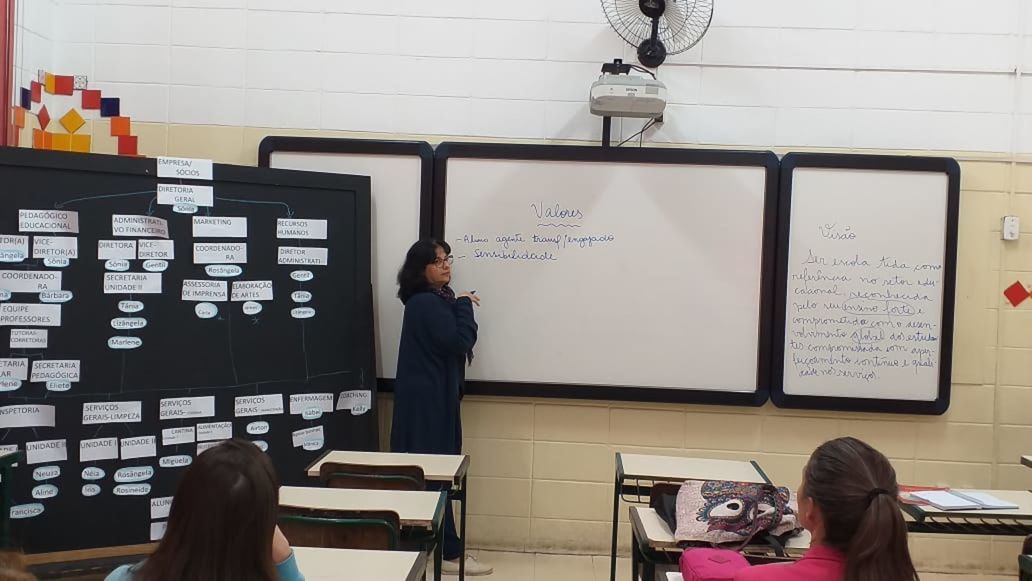 EMPRESA/
SÓCIOS
DIRETORIA
GERAL
Sônia
PEDAGÓGICO
EDUCACIONAL
ADMINISTRATI
VO FINANCEIRO
MARKETING
RECURSOS
HUMANOS
VICE-
DIRETOR(A)
Sônia
DIRETORA
Sônia
VICE-
DIRETOR
Gentil
COORDENADO-
RA
Rosângela
DIRETOR
ADMINISTRATI-
Gentil
COORDENADO-
RA
Bárbara
SECRETARIA
UNIDADE II
Tânia
Lizângela
Marlene
ASSESSORIA
DE IMPRENSA
ELABORAÇÃO
DE ARTES
Tânia
EQUIPE
PROFESSORES
TUTORAS-
CORRETORAS
SECRETARIA
PEDAGÓGICA
Eliete
SERVIÇOS
GERAIS-LIMPEZA
SERVIÇOS
GERAIS-
SERVIÇOS
GERAIS
ENFERMAGEM
Isabel
COACHING
Kelly
CANTINA
ALIMENTAÇÃO
Miguela
Airton
Mônica
UNIDADE II
Neuza
Aline
UNIDADE I
Néia
Iris
UNIDADE II
Rosângela
Rosineide
EPSON
Valores
- Aluno agente transf/engajado
- Sensibilidade
Visão
Ser escola tida como
referência no setor edu-
cacional, reconhecida
pelo seu ensino forte e
comprometida com o desen-
volvimento global do estudan
tes compromissada com aper-
feiçoamento contínuo e quali-
dade nos serviços.